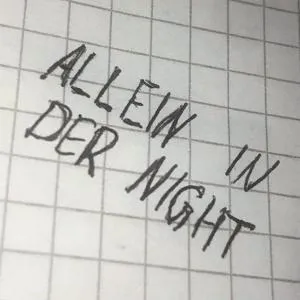 ALLEIN IN
DER NIGHT